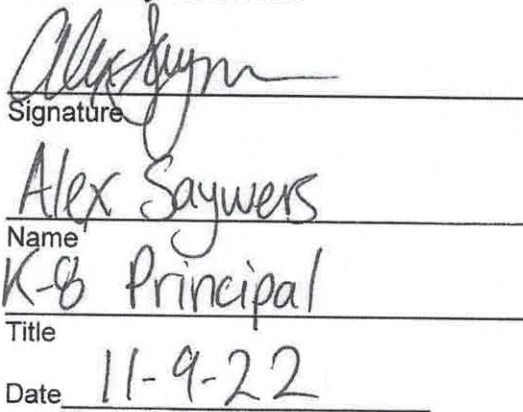 Signature
Alex Saywers
Name
K-8 Principal
Title
Date 11-9-22